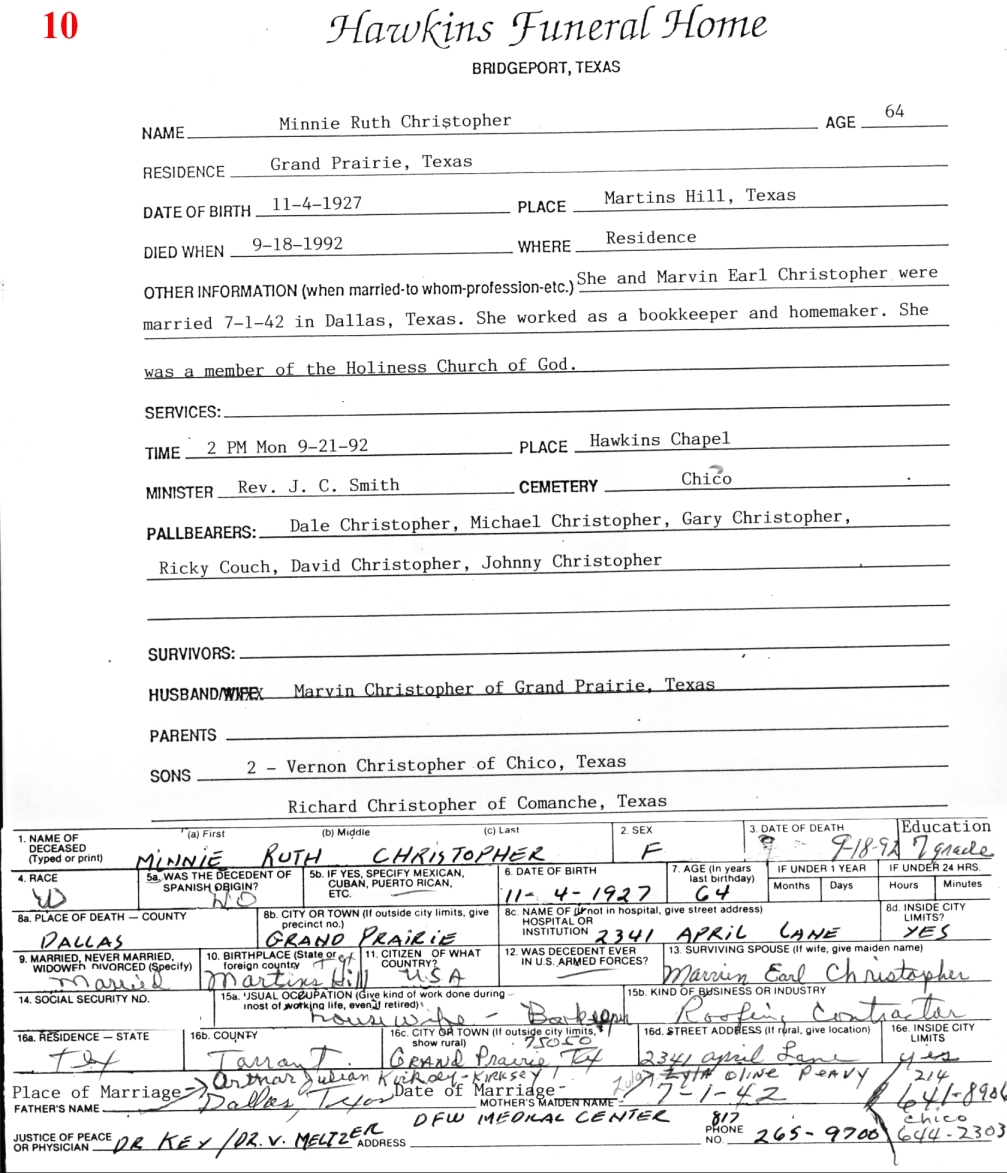 10
Hawkins Funeral Home
BRIDGEPORT, TEXAS
NAME Minnie Ruth Christopher AGE 64
RESIDENCE Grand Prairie, Texas
DATE OF BIRTH 11-4-1927 PLACE Martins Hill, Texas
DIED WHEN 9-18-1992 WHERE Residence
OTHER INFORMATION (when married-to whom-profession-etc.) She and Marvin Earl Christopher were
married 7-1-42 in Dallas, Texas. She worked as a bookkeeper and homemaker. She
was a member of the Holiness Church of God.
SERVICES:
TIME 2 PM Mon 9-21-92 PLACE Hawkins Chapel
MINISTER Rev. J. C. Smith CEMETERY Chico
PALLBEARERS: Dale Christopher, Michael Christopher, Gary Christopher,
Ricky Couch, David Christopher, Johnny Christopher
SURVIVORS:
HUSBAND/WIFE Marvin Christopher of Grand Prairie, Texas
PARENTS
SONS 2 - Vernon Christopher of Chico, Texas
Richard Christopher of Comanche, Texas
1. NAME OF DECEASED (Typed or print) (a) First (b) Middle (c) Last 2. SEX 3. DATE OF DEATH Education
MINNIE RUTH CHRISTOPHER F 9-18-92 7 grade
4. RACE 5a. WAS THE DECEDENT OF SPANISH ORIGIN? 5b. IF YES, SPECIFY MEXICAN, CUBAN, PUERTO RICAN, ETC. 6. DATE OF BIRTH 7. AGE (In years last birthday) IF UNDER 1 YEAR IF UNDER 24 HRS.
Months Days Hours Minutes
W NO 11-4-1927 64
8a. PLACE OF DEATH — COUNTY 8b. CITY OR TOWN (If outside city limits, give precinct no.) 8c. NAME OF (If not in hospital, give street address) HOSPITAL OR INSTITUTION 8d. INSIDE CITY LIMITS?
DALLAS GRAND PRAIRIE 2341 APRIL LANE YES
9. MARRIED, NEVER MARRIED, WIDOWED DIVORCED (Specify) 10. BIRTHPLACE (State or foreign country 11. CITIZEN OF WHAT COUNTRY? 12. WAS DECEDENT EVER IN U.S. ARMED FORCES? 13. SURVIVING SPOUSE (If wife, give maiden name)
Married Martins Hill USA Marvin Earl Christopher
14. SOCIAL SECURITY NO. 15a. USUAL OCCUPATION (Give kind of work done during most of working life, even if retired) 15b. KIND OF BUSINESS OR INDUSTRY
housewife - Bookkeeper Roofing Contractor
16a. RESIDENCE — STATE 16b. COUNTY 16c. CITY OR TOWN (If outside city limits, show rural) 16d. STREET ADDRESS (If rural, give location) 16e. INSIDE CITY LIMITS
75050
Tex Tarrant GRAND Prairie, Tex 2341 April Lane yes
Arthur Julian KIRKSEY OLINE PEAVY 214
Place of Marriage Dallas, Texas Date of Marriage 7-1-42 641-8906
FATHER'S NAME MOTHER'S MAIDEN NAME
DFW MEDICAL CENTER Chico
JUSTICE OF PEACE OR PHYSICIAN DR KEY/DR. V. MELTZER ADDRESS PHONE NO. 817 265-9700 644-2303